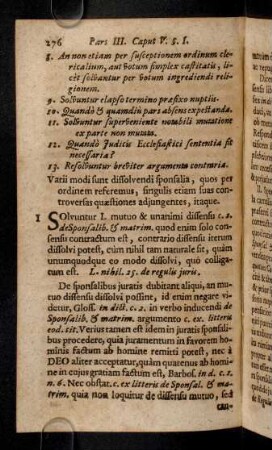 276 Pars III. Caput V. §. I.
8. An non etiam per susceptionem ordinum cle-
ricalium, aut votum simplex castitatis, li-
cit solvantur per votum ingrediendi reli-
gionem.
9. Solvuntur elapso termino præfixo nuptiis.
10. Quando & quamdiu pars absens expectanda.
11. Solvuntur superveniente notabili mutatione
ex parte non mutata.
12. Quando Judicis Ecclesiastici sententia sit
necessaria?
13. Resolvuntur breviter argumenta contraria.
Varii modi sunt dissolvendi sponsalia, quos per
ordinem referemus, singulis etiam suas con-
troversas quæstiones adjungentes, itaque.
1 Solvuntur I. mutuo & unanimi dissensu c. 2.
de Sponsalib. & matrim. quod enim solo con-
sensu contractum est, contrario dissensu iterum
dissolvi potest, cum nihil tam naturale sit, quàm
unumquodque eo modo dissolvi, quô colliga-
tum est. L. nihil. 35. de regulis juris.
De sponsalibus juratis dubitant aliqui, an mu-
tuo dissensu dissolvi possint, id enim negare vi-
detur, Gloss. in dict. c. 2. in verbo inducendi de
Sponsalib. & matrim. argumento c. ex. litteris
eod. tit. Verius tamen est idem in juratis sponsali-
bus procedere, quia juramentum in favorem ho-
minis factum ab homine remitti potest, nec à
DEO aliter acceptatur, quàm quatenus ab homi-
ne in cujus gratiam factum est, Barbos. in d. c. 2.
n. 6. Nec obstat. c. ex litteris de Sponsal. & ma-
trim. quia non loquitur de dissensu mutuo, sed
tan-